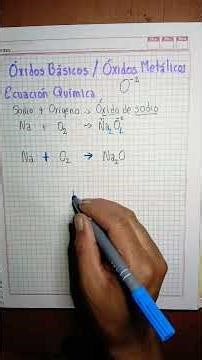 Óxidos Básicos / Óxidos Metálicos
Ecuación Química O⁻²
Sodio + Oxígeno → Óxido de sodio
Na + O₂ → Na₂O₂
Na + O₂ → Na₂O